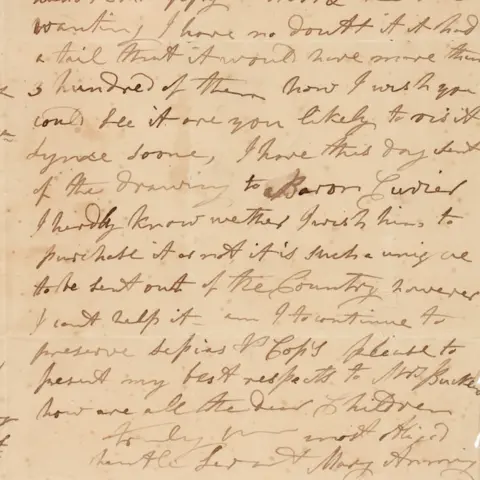 wanting, I have no doubt if it had
a tail that it would have more than
3 hundred of them how I wish you
could see it are you likely to visit
Lyme soone, I have this day sent
of the drawing to Baron Cuvier
I hardly know wether I wish him to
purchase it or not it is such a uniq ue
to be sent out of the Country however
I cant help it - am I to continue to
preserve sepias & Cop's please to
present my best respects to Mrs Buck
how are all the dear Children
most
humble Servant Mary Anning